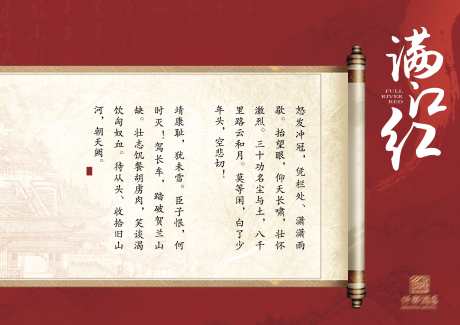 满江红
FULL
RIVER
RED
怒发冲冠，凭栏处、潇潇雨
歇。抬望眼，仰天长啸，壮怀
激烈。三十功名尘与土，八千
里路云和月。莫等闲，白了少
年头，空悲切！
靖康耻，犹未雪。臣子恨，何
时灭！驾长车，踏破贺兰山
缺。壮志饥餐胡虏肉，笑谈渴
饮匈奴血。待从头、收拾旧山
河，朝天阙。